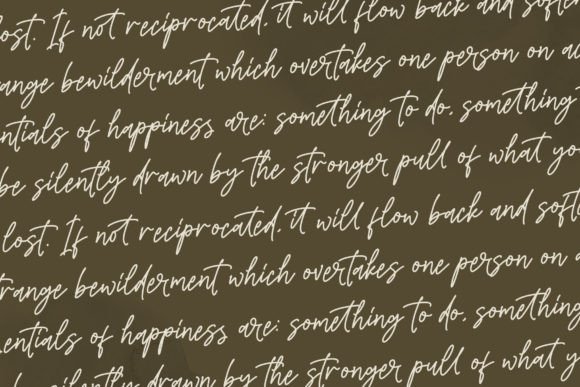 lost. If not reciprocated, it will flow back and soften
range bewilderment which overtakes one person on a
ntials of happiness are: something to do, something
be silently drawn by the stronger pull of what yo
lost. If not reciprocated, it will flow back and softe
trange bewilderment which overtakes one person on a
entials of happiness are: something to do, something
be silently drawn by the stronger pull of what yo